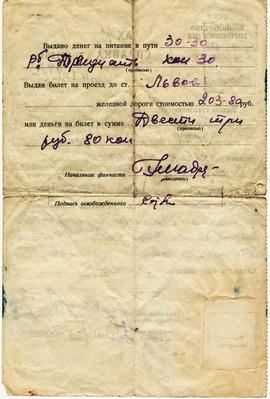 Выдано денег на питание в пути 30-30
рб Тридцать коп 30
(прописью)
Выдан билет на проезд до ст. Львов
железной дороги стоимостью 203-80 руб.
или деньги на билет в сумме Двести три
(прописью)
руб. 80 коп
Начальник финчасти
(подпись)
Подпись освобожденного